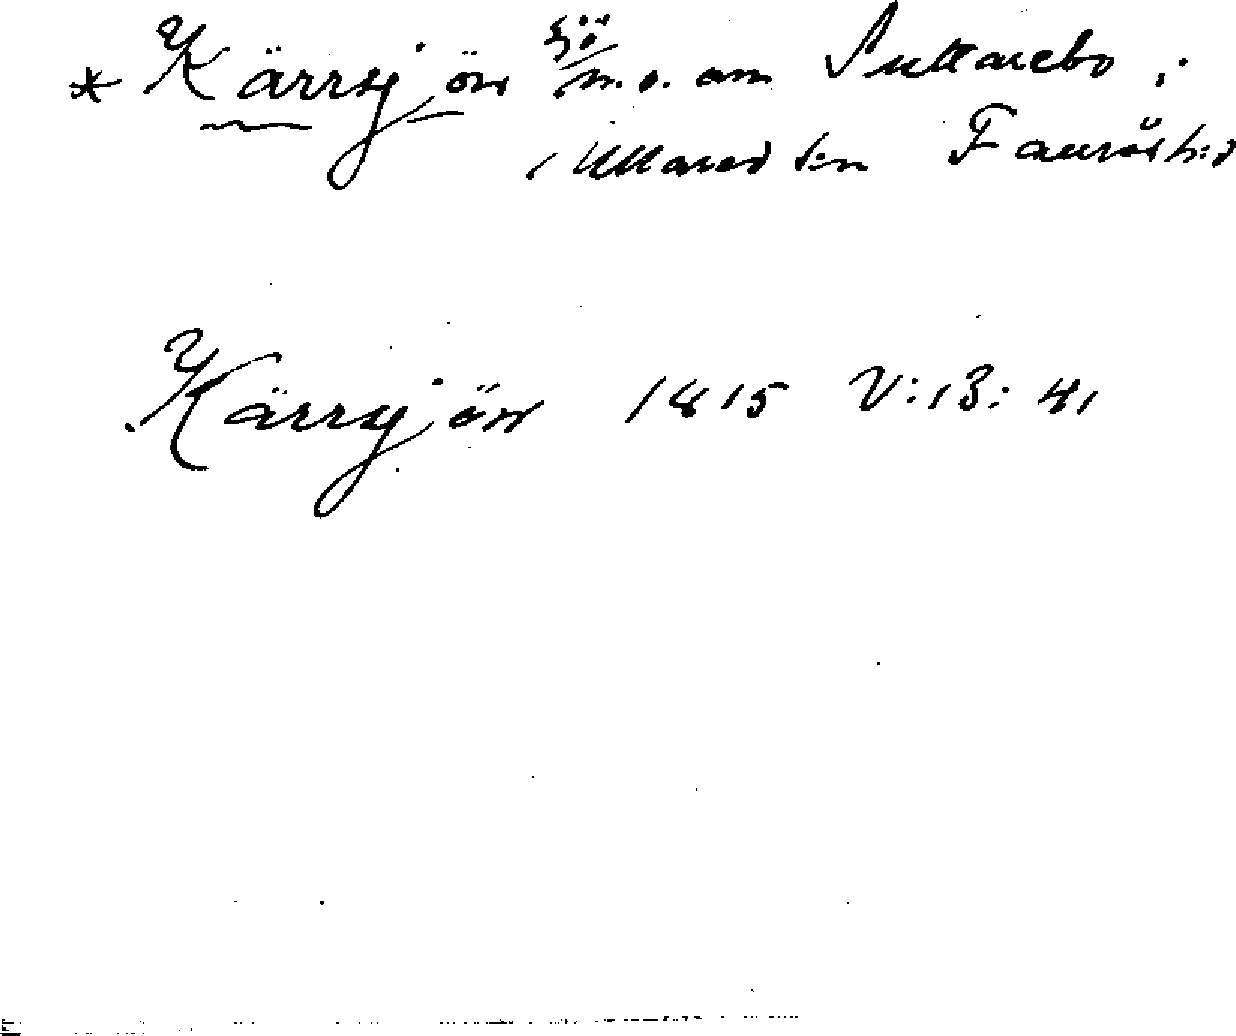 * Kärrsjön sjö n.o. om Sullarebo, i
Ullared sn Faurås h:d
Kärrsjön 1815 V:13:41